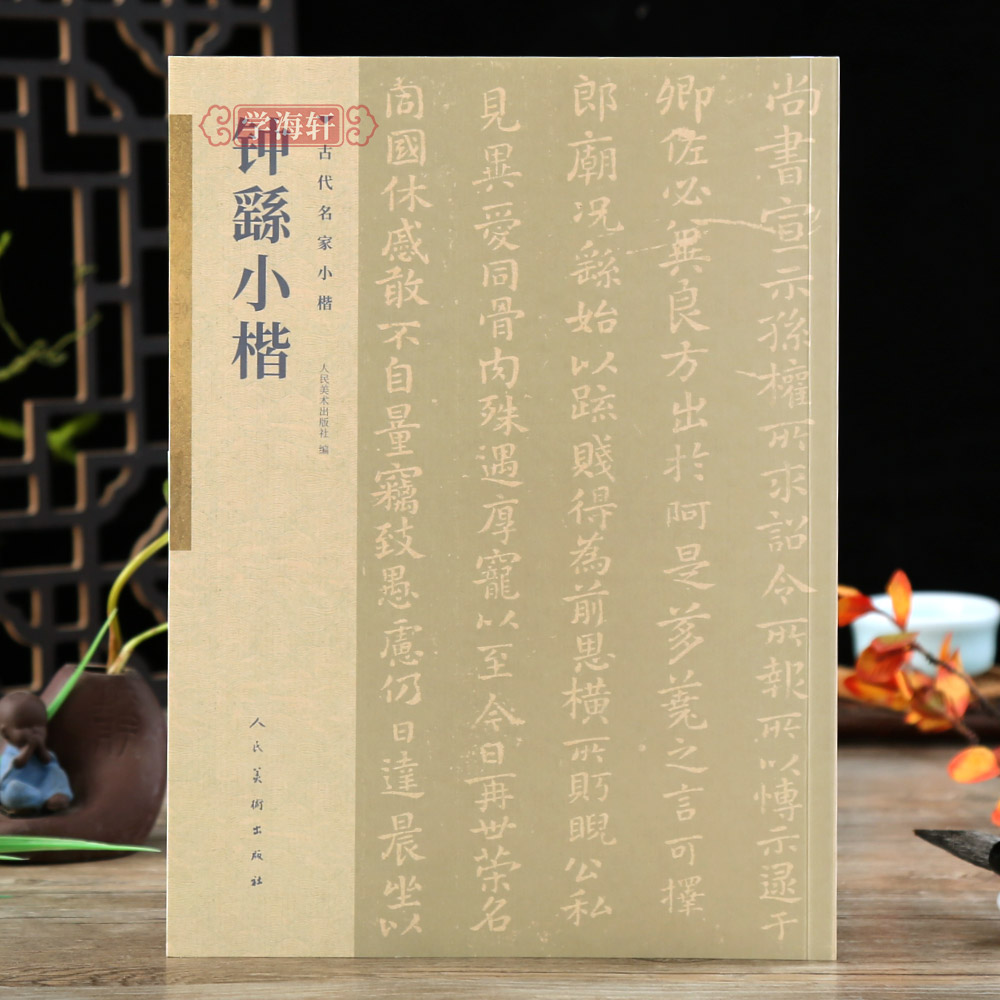 学海轩
古代名家小楷
钟繇小楷
人民美术出版社 编
人民美術出版社
尚書宣示孫權所求詔令所報所以愽示逮于
卿佐必冀良方出於阿是芻蕘之言可擇
郎廟況繇始以疏賤得為前恩橫所盻睨公私
見異愛同骨肉殊遇厚寵以至今日再世榮名
同國休慼敢不自量竊致愚慮仍日達晨坐以